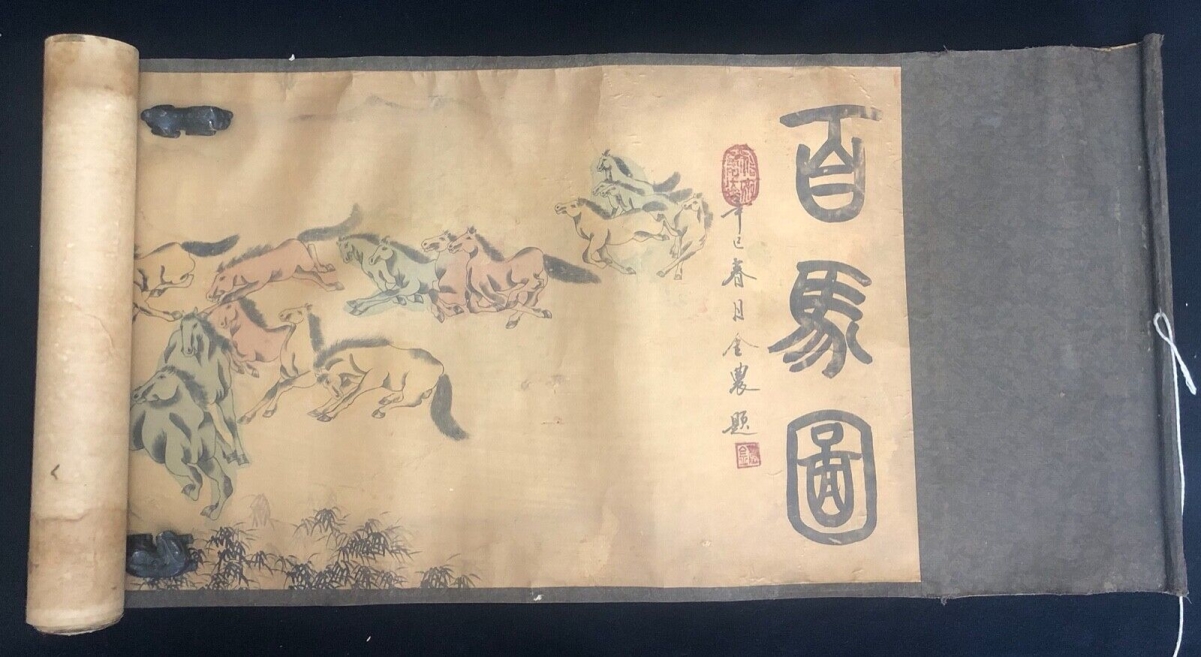 百馬圖
辛巳春月金農題